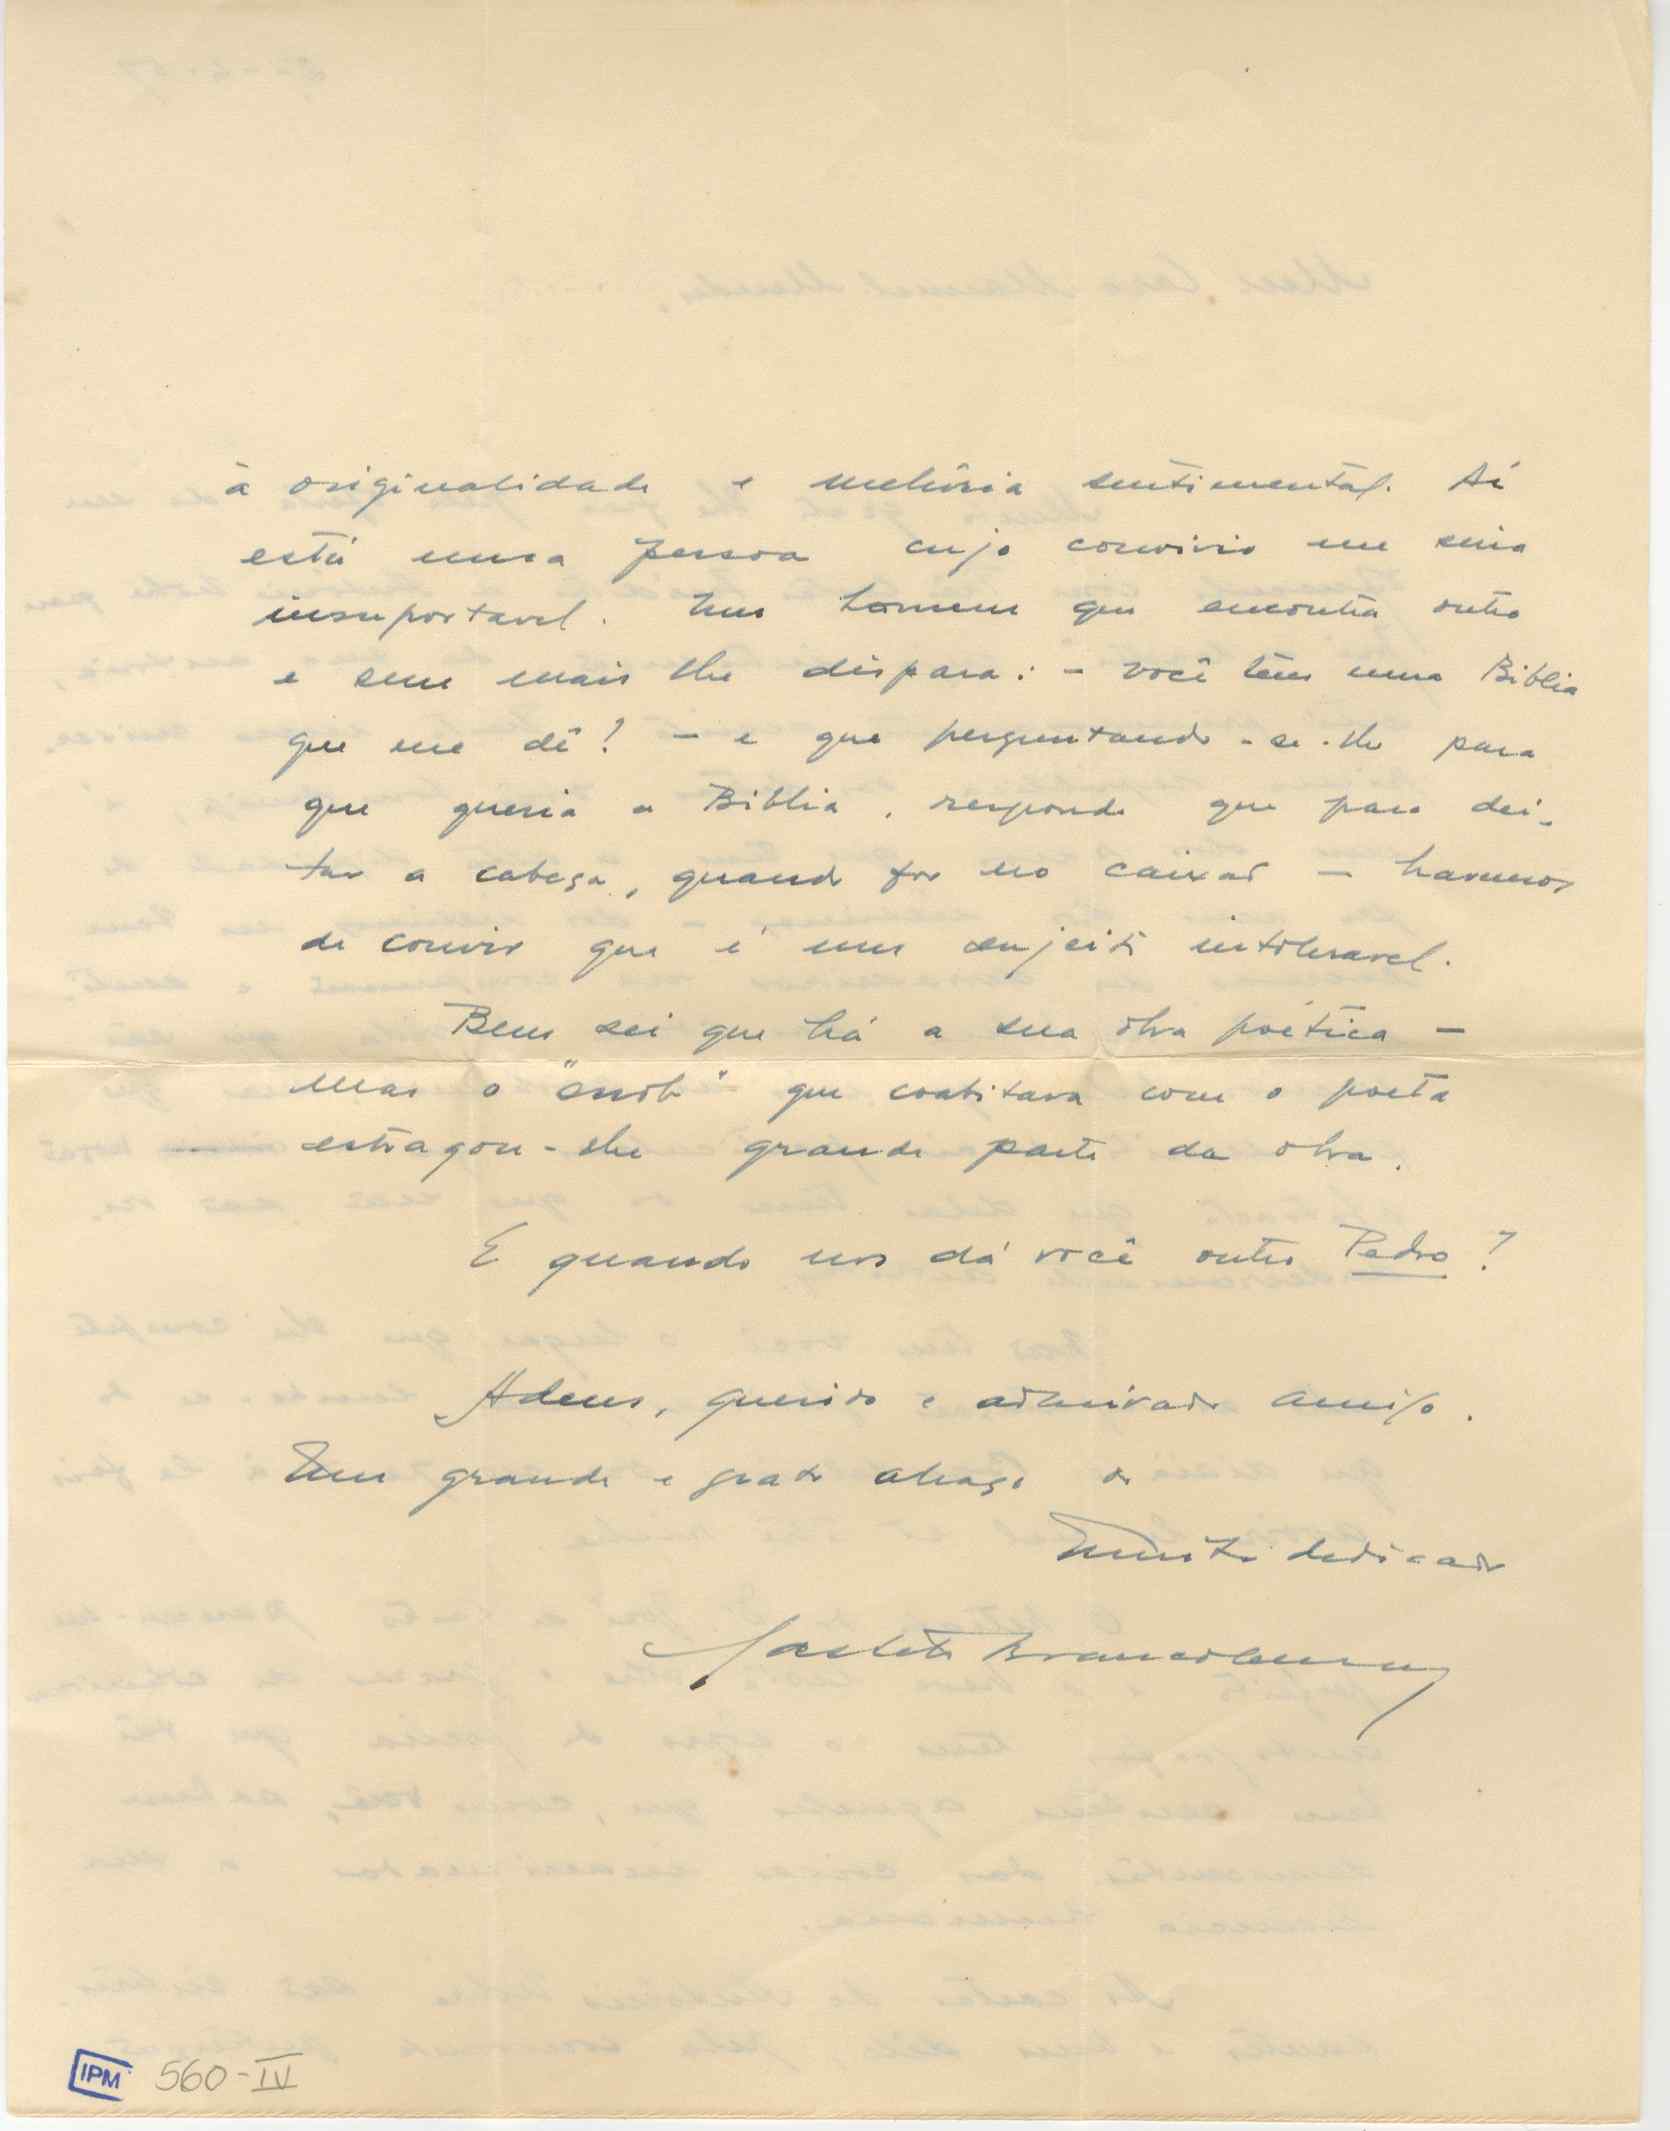 à originalidade e                     sentimental. Aí
está uma pessoa cujo convivio me seria
insuportavel. Um homem que encontra outro
e sem mais lhe dispara: - você tem uma Biblia
que me dê? - e que perguntando-se-lhe para
que queria a Biblia, responde que para dei-
tar a cabeça, quando for no caixão - havemos
de convir que é um sujeito intoleravel.
Bem sei que há a sua obra poética -
mas o "snob" que coabitava com o poeta
estragou-lhe grande parte da obra.
E quando nos dá você outro Pedro?
Adeus, querido e admirado amigo.
Um grande e grato abraço do
Muito dedicado
IPM 560-IV